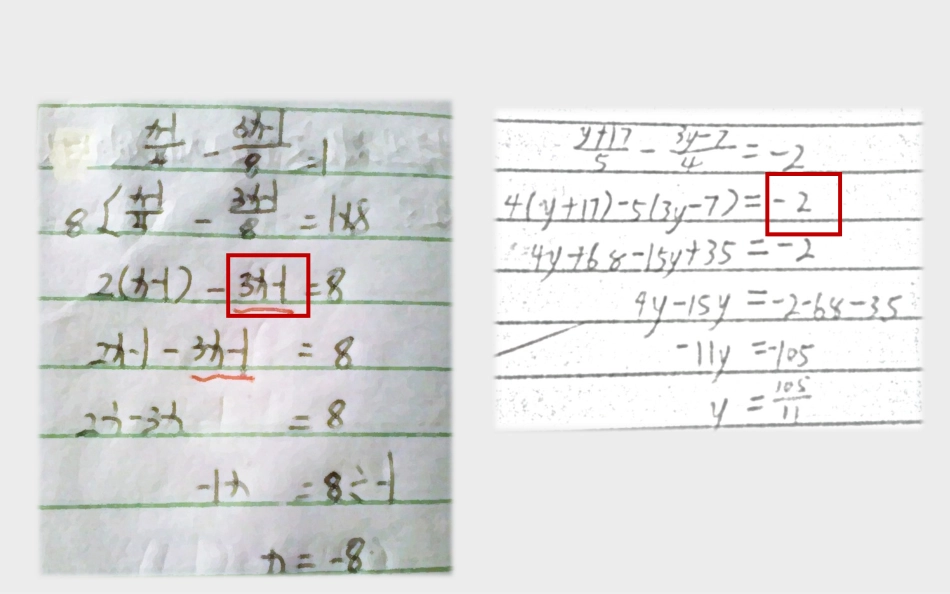 x-1/4 - 3x-1/8 = 1
8[x-1/4 - 3x-1/8 = 1x8
2(x-1) - 3x-1 = 8
2x-1 - 3x-1 = 8
2x-3x = 8
-1x = 8÷-1
x = -8
y+17/5 - 3y-7/4 = -2
4(y+17)-5(3y-7) = -2
4y+68-15y+35 = -2
4y-15y = -2-68-35
-11y = -105
y = 105/11